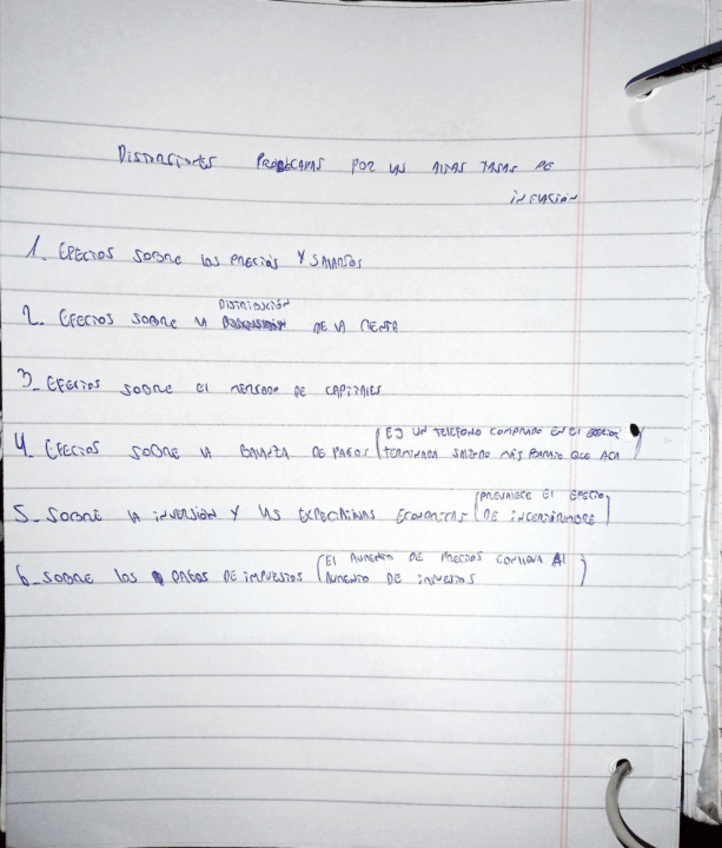 Distorsiones provocadas por las altas tasas de
inflación
1. Efectos sobre los precios y salarios
2. Efectos sobre la distribución de la renta
3_ Efectos sobre el mercado de capitales
4_ Efectos sobre la balanza de pagos (EJ un telefono comprado en el exterior
terminara saliendo más barato que aca)
5_ Sobre la inversión y las expectativas economicas (prevalece el efecto
de incertidumbre)
6_ Sobre los pagos de impuestos (El aumento de precios conlleva al
aumento de impuestos)